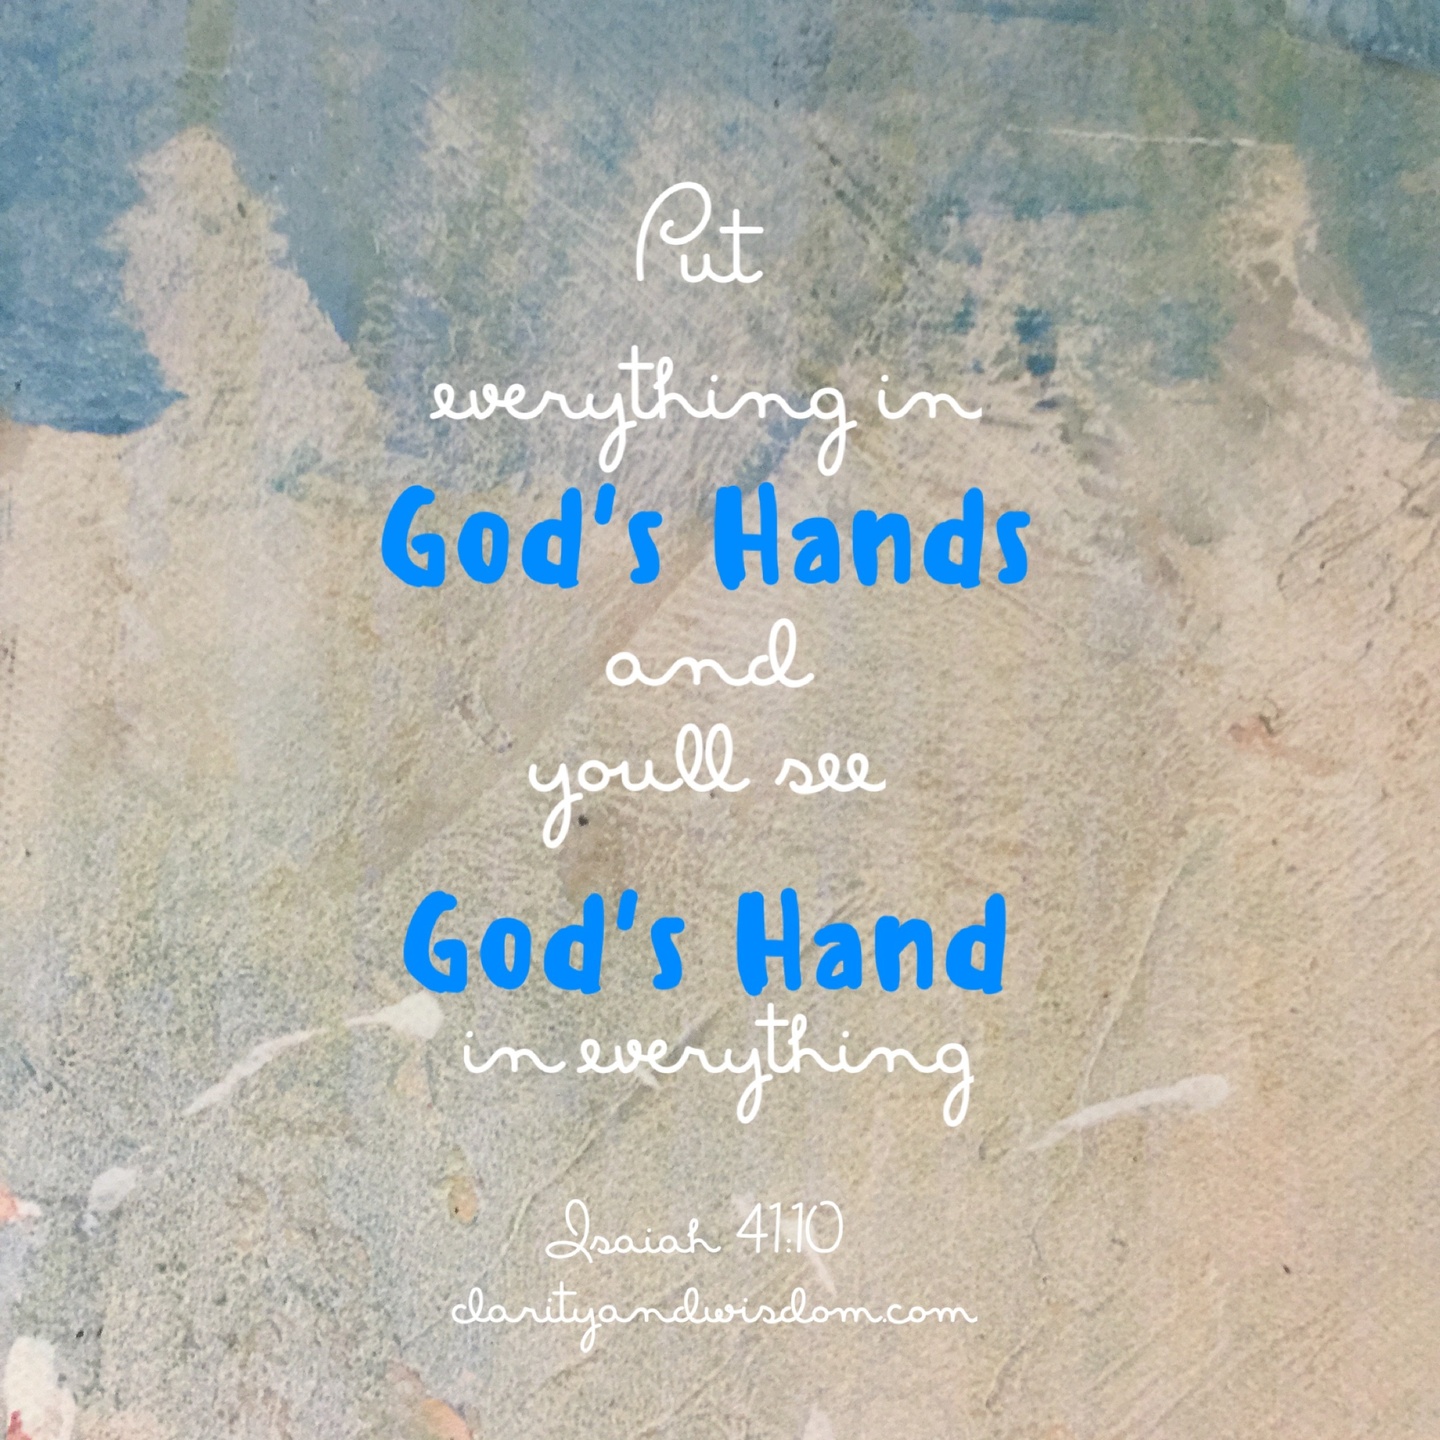 Put
everything in
God's Hands
and
youll see
God's Hand
in everything
Isaiah 41:10
clarityandwisdom.com